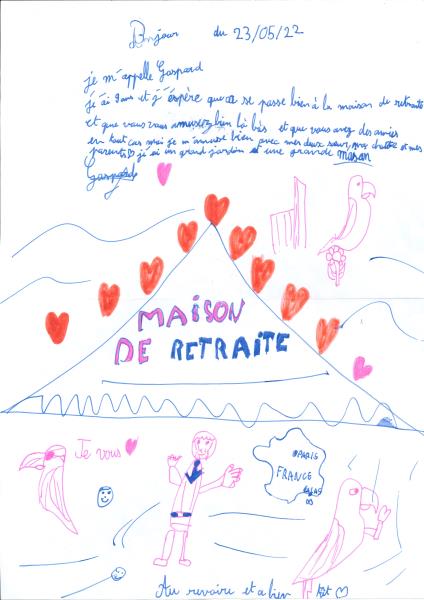 Bonjour du 23/05/22
je m'appelle Gaspard
j'é ai 9 ans et j'éspère que ça se passe bien à la maison de retraite
et que vous vous amusez bien là bas et que vous avez des amies
en tout cas moi je m'amuse bien avec mes deux sœur, mes chatte et mes
parents♡ j'é ai un grand jardin et une grande maison
Gaspard
MAiSON
DE RETRAiTE
Je vous ♥
PARiS
FRANCE
Au revoire et a bien tôt ♡